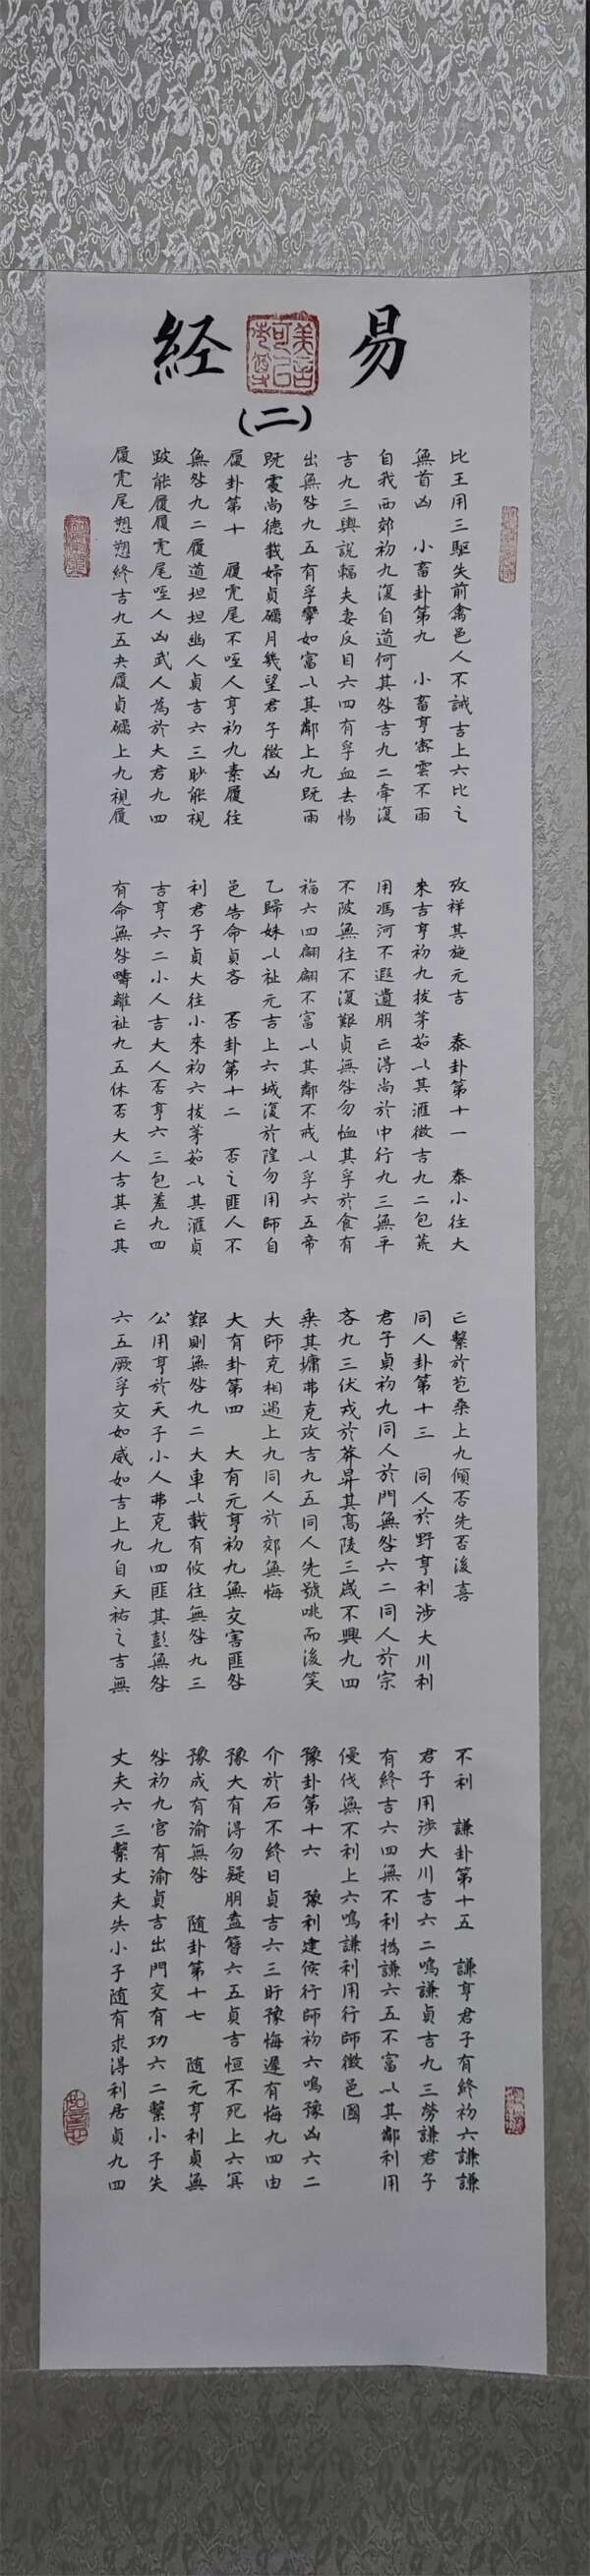 易經
(二)
比王用三驅失前禽邑人不誡吉上六比之
無首凶 小畜卦第九 小畜亨密雲不雨
自我西郊初九復自道何其咎吉九二牽復
吉九三輿說輻夫妻反目六四有孚血去惕
出無咎九五有孚攣如富以其鄰上九既雨
既處尚德載婦貞礪月幾望君子徵凶
履卦第十 履虎尾不咥人亨初九素履往
無咎九二履道坦坦幽人貞吉六三眇能視
跛能履履虎尾咥人凶武人為於大君九四
履虎尾愬愬終吉九五夬履貞礪上九視履
攷祥其旋元吉 泰卦第十一 泰小往大
來吉亨初九拔茅茹以其滙徵吉九二包荒
用馮河不遐遺朋亡得尚於中行九三無平
不陂無往不復艱貞無咎勿恤其孚於食有
福六四翩翩不富以其鄰不戒以孚六五帝
乙歸妹以祉元吉上六城復於隍勿用師自
邑告命貞吝 否卦第十二 否之匪人不
利君子貞大往小來初六拔茅茹以其滙貞
吉亨六二小人吉大人否亨六三包羞九四
有命無咎疇離祉九五休否大人吉其亡其
亡繫於苞桑上九傾否先否後喜
同人卦第十三 同人於野亨利涉大川利
君子貞初九同人於門無咎六二同人於宗
吝九三伏戎於莽昇其高陵三歲不興九四
乘其墉弗克攻吉九五同人先號咷而後笑
大師克相遇上九同人於郊無悔
大有卦第四 大有元亨初九無交害匪咎
艱則無咎九二大車以載有攸往無咎九三
公用亨於天子小人弗克九四匪其彭無咎
六五厥孚交如威如吉上九自天祐之吉無
不利 謙卦第十五 謙亨君子有終初六謙謙
君子用涉大川吉六二鳴謙貞吉九三勞謙君子
有終吉六四無不利撝謙六五不富以其鄰利用
侵伐無不利上六鳴謙利用行師徵邑國
豫卦第十六 豫利建侯行師初六鳴豫凶六二
介於石不終日貞吉六三盱豫悔遲有悔九四由
豫大有得勿疑朋盍簪六五貞吉恒不死上六冥
豫成有渝無咎 隨卦第十七 隨元亨利貞無
咎初九官有渝貞吉出門交有功六二繫小子失
丈夫六三繫丈夫失小子隨有求得利居貞九四